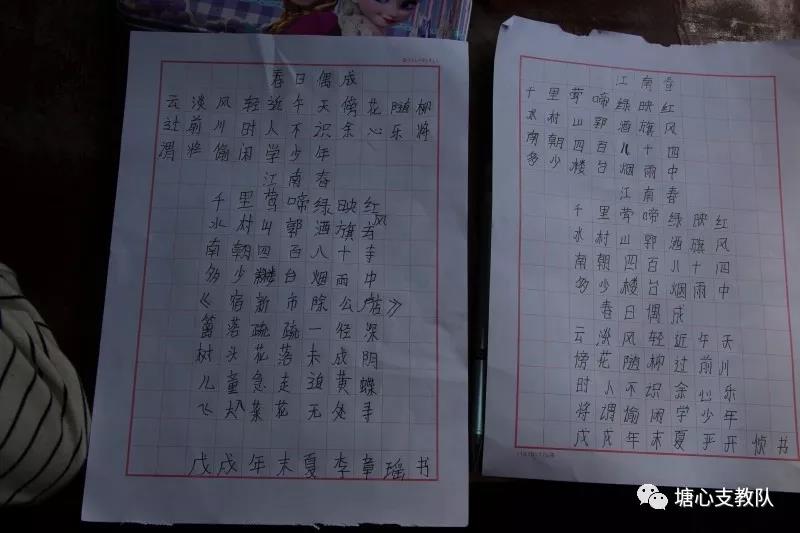 春日偶成
云淡风轻近午天傍花随柳
过前川时人不识余心乐将
谓将偷闲学少年
江南春
千里莺啼绿映红
水村山郭酒旗风
南朝四百八十寺
多少楼台烟雨中
《宿新市除公店》
篱落疏疏一径深
树头花落未成阴
儿童急走追黄蝶
飞入菜花无处寻
戊戌年末夏李章瑶书
江南春
千里莺啼绿映红
水村山郭酒旗风
南朝四百八十四
多少楼台烟雨中
江南春
千里莺啼绿映红
水村山郭酒旗风
南朝四百八十四
多少楼台烟雨中
春日偶成
云淡风轻近午天
傍花随柳过前川
时人不识余心乐
将谓偷闲学少年
戊戌年末夏 开惊书
塘心支教队